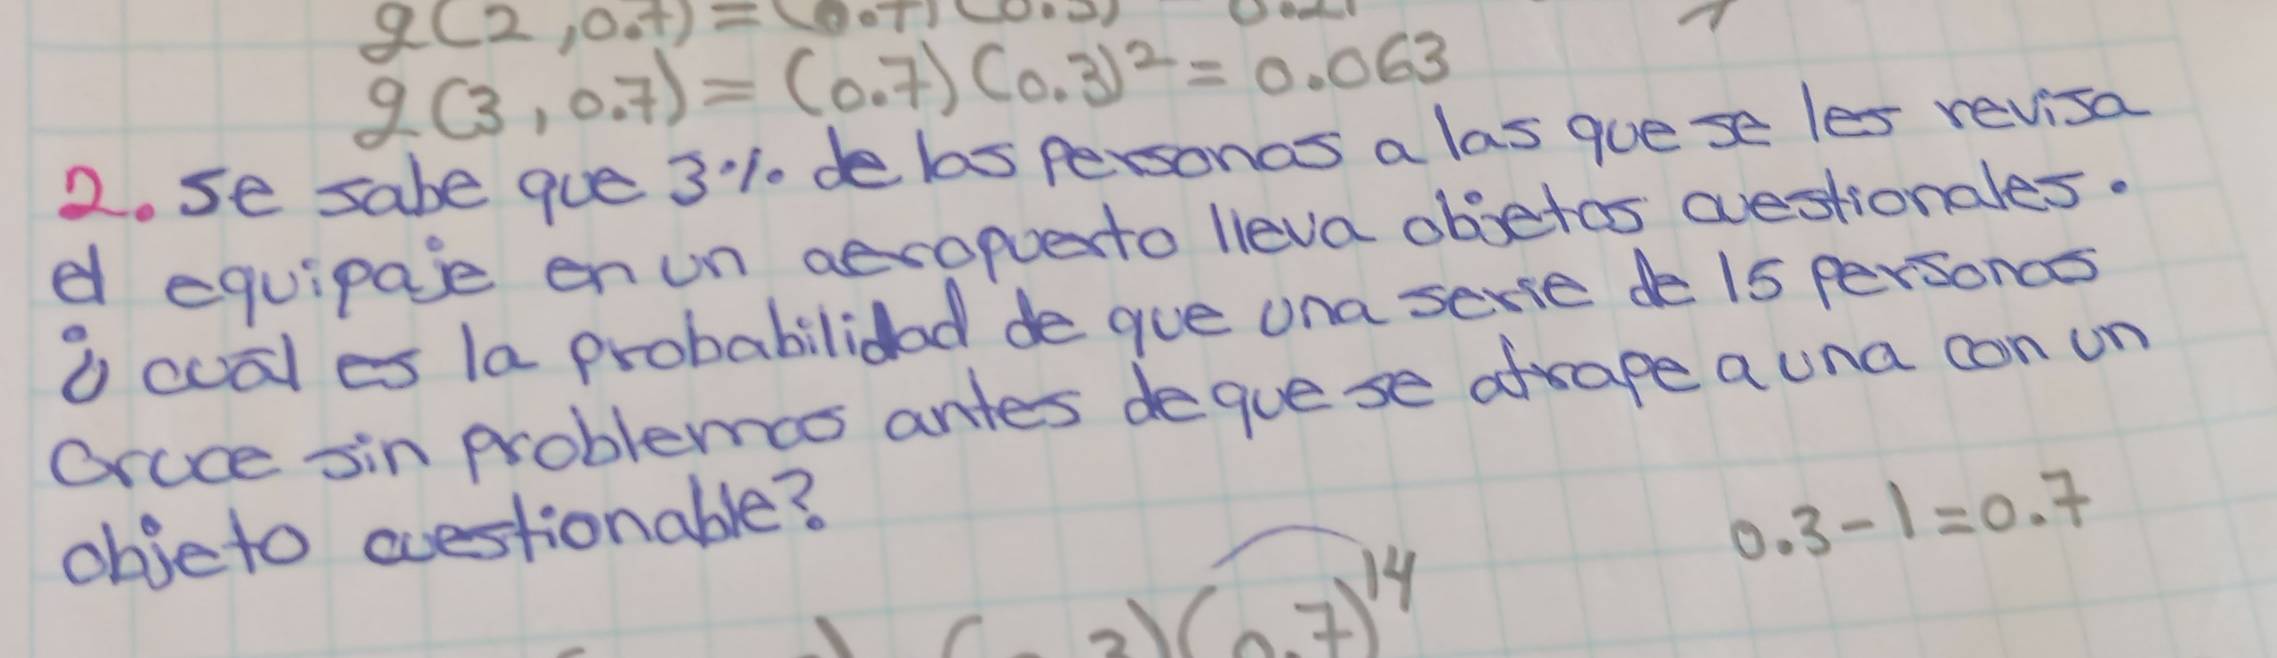 g(2,0.7)=(0.7)(0.3)
g(3,0.7)=(0.7)(0.3)²=0.063
2. Se sabe que 3% de las personas a las que se les revisa
el equipaje en un aeropuerto lleva objetos cuestionales.
¿cuál es la probabilidad de que una serie de 15 personas
cruce sin problemas antes de que se atrape a una con un
objeto cuestionable?
0.3-1=0.7
(0.7)¹⁴